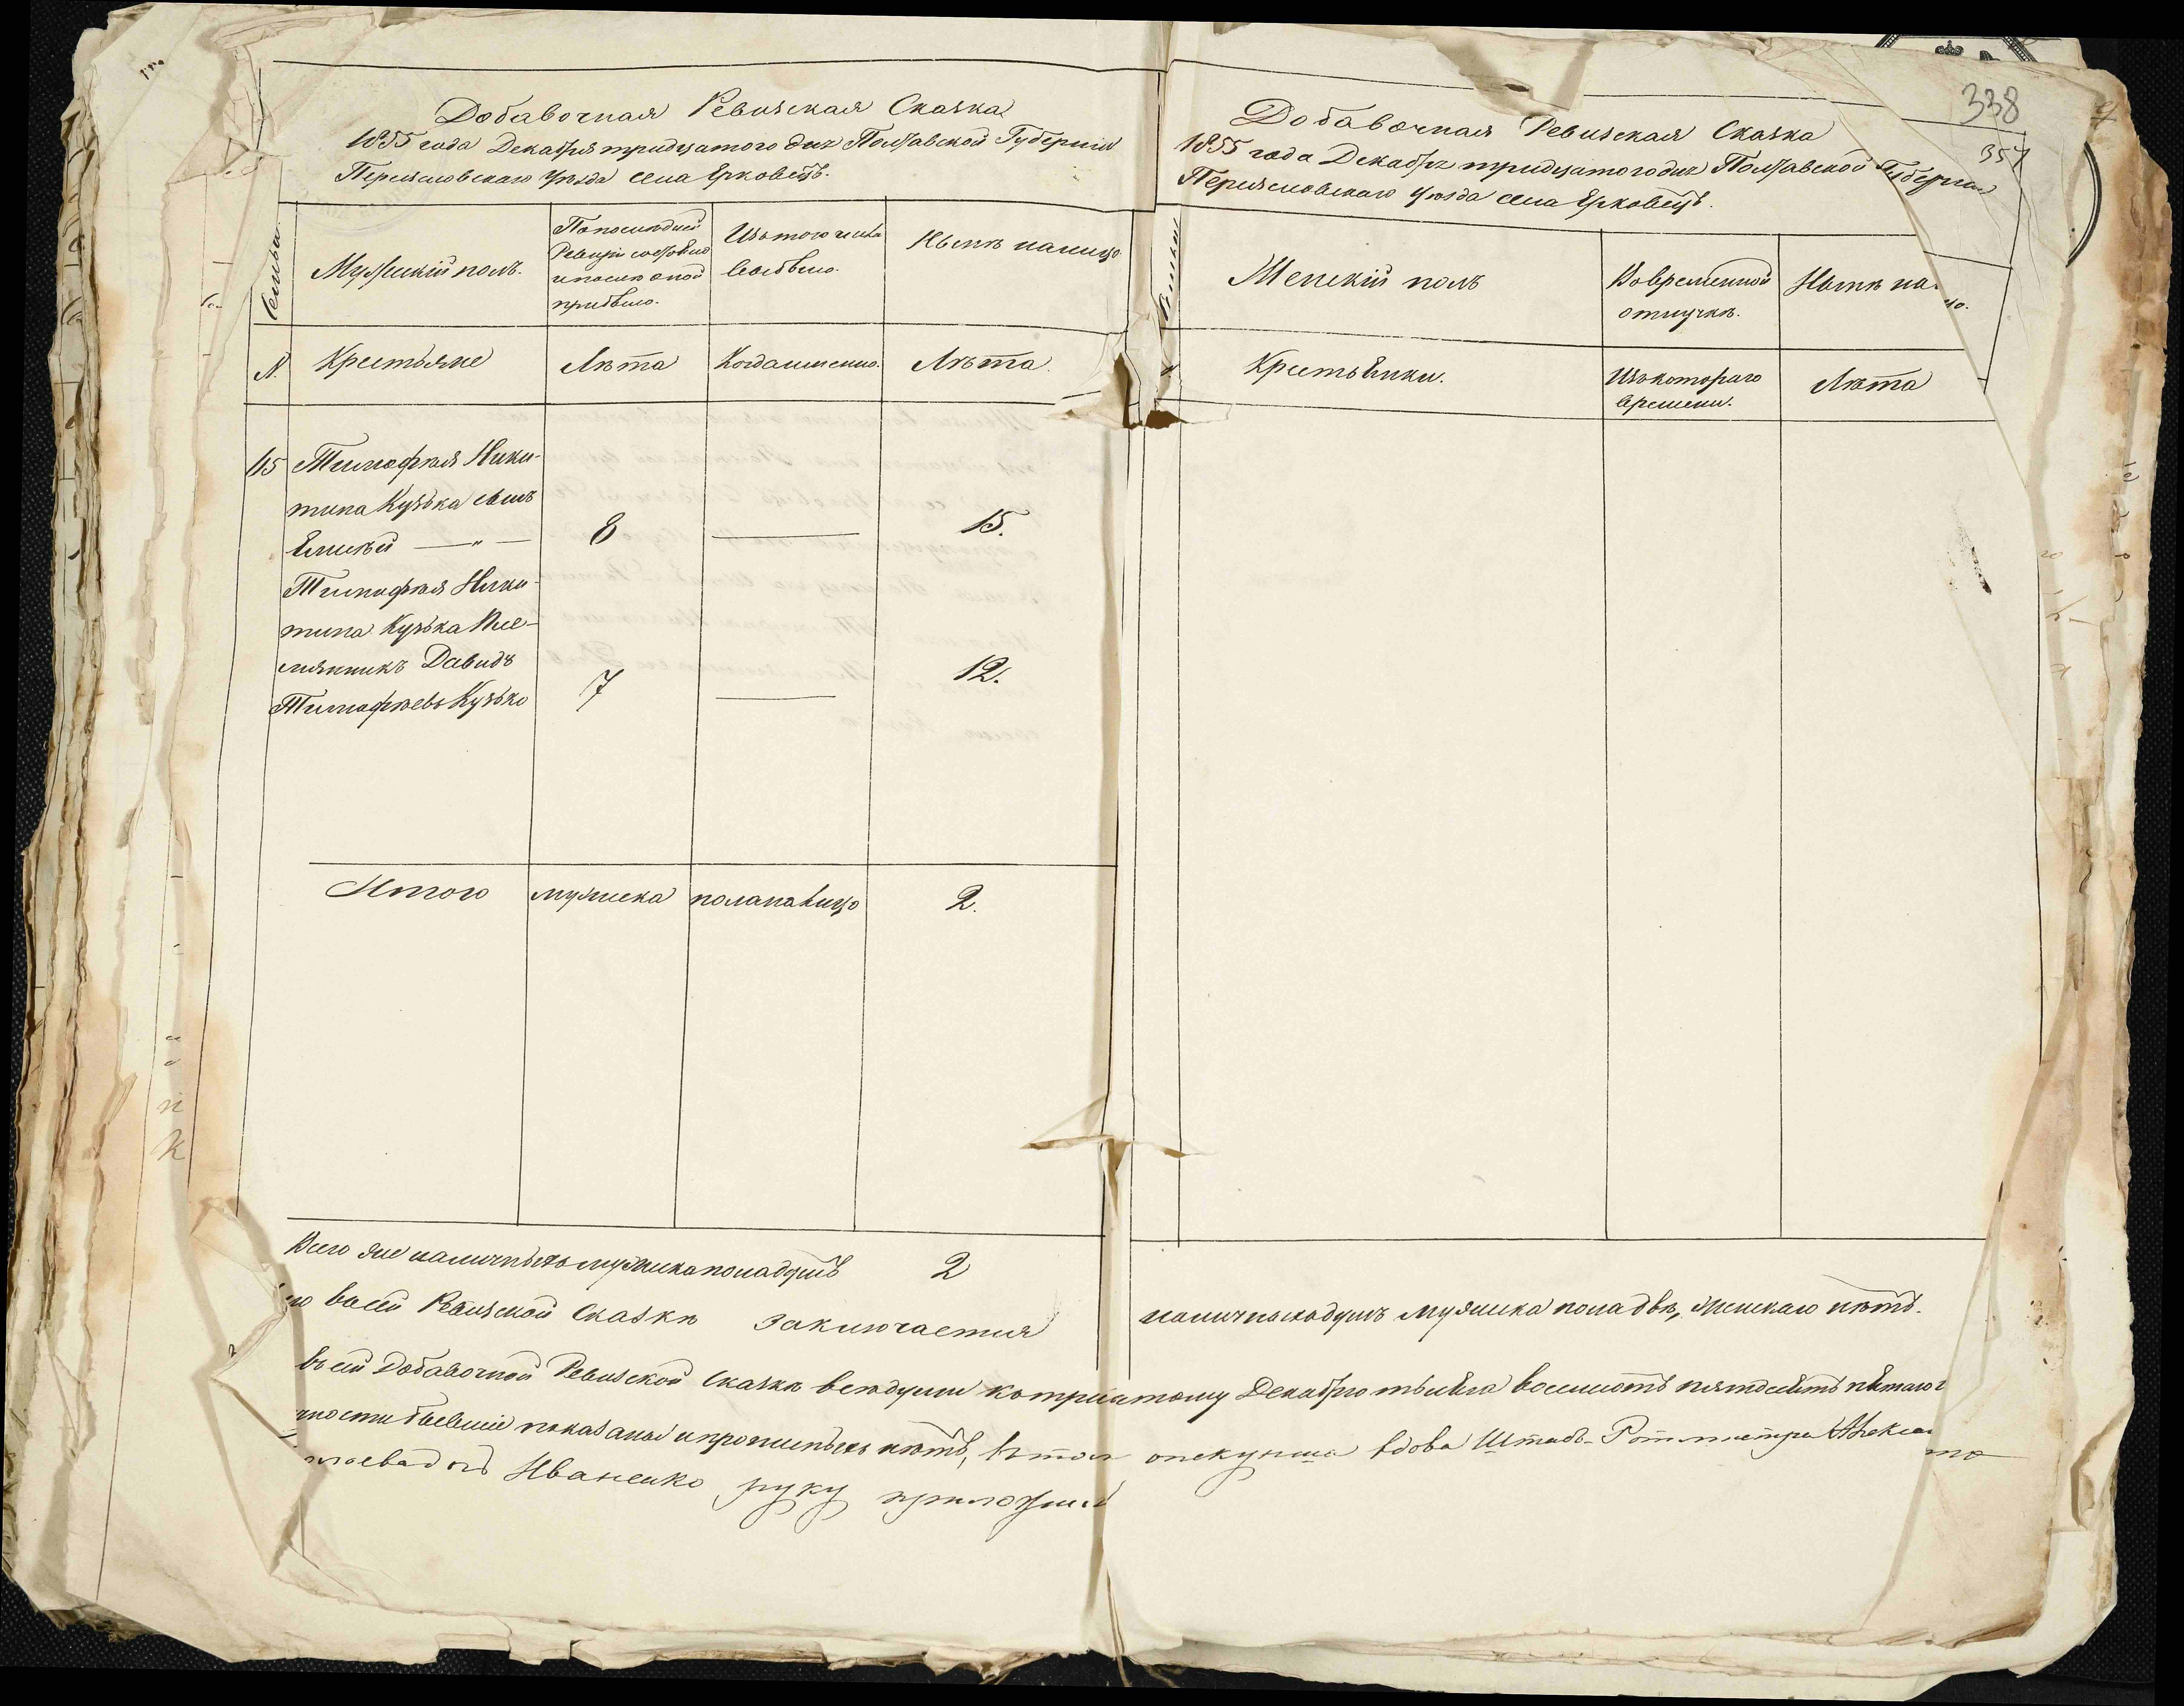 Добавочная Ревизская Сказка
1855 года Декабря тридцатого дня Полтавской Губернии
Переясловскаго Уезда села Ерковецъ.
Семьи
Мужескій полъ.
По последней
Ревизіи состояло
и после оной
прибыло.
Изъ того числа
выбыло.
Ныне на лицо.
№.
Крестьяне
Лѣта
Когда именно.
Лѣта.
45 Тимофѣя Ники-
тина Кузька сынъ
Елисѣй — " — 8 — 15.
Тимофѣя Ники-
тина Кузька Пле-
мянникъ Давидъ
Тимофѣевъ Кузько 7 — 12.
Итого мужеска пола на лицо 2.
Всего же наличныхъ мужеска пола душъ 2
въ сей Ревизской Сказкѣ заключается
338
357
Добавочная Ревизская Сказка
1855 года Декабря тридцатого дня Полтавской Губернии
Переясловскаго Уезда села Ерковецъ.
Семьи
Женскій полъ
Во временной
отлучкѣ.
Ныне на
цо.
Крестьянки.
Изъ котораго
времени.
Лѣта
налично душъ мужеска пола двѣ, женскаго нѣтъ.
въ сей Добавочной Ревизской Сказкѣ все души къ тридцатому Декабрю тысяча восемьсотъ пятьдесятъ пятаго г
ности бывшіе показаны и прописныхъ нѣтъ, въ том опекунша вдова Штабъ-Ротмистра Алекса
Иваненко руку приложила